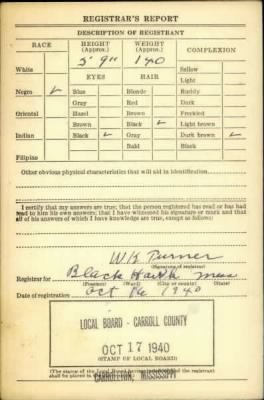 REGISTRAR'S REPORT
DESCRIPTION OF REGISTRANT
RACE HEIGHT (Approx.) WEIGHT (Approx.) COMPLEXION
5' 9" 140
White Sallow
EYES HAIR Light
Negro ✓ Blue Blonde Ruddy
Gray Red Dark
Oriental Hazel Brown Freckled
Brown Black ✓ Light brown
Indian Black ✓ Gray Dark brown ✓
Bald Black
Filipino
Other obvious physical characteristics that will aid in identification
I certify that my answers are true; that the person registered has read or has had
read to him his own answers; that I have witnessed his signature or mark and that
all of his answers of which I have knowledge are true, except as follows:
Turner
(Signature of registrar)
Registrar for Black Hawk Miss
(Precinct) (Ward) (City or county) (State)
Date of registration Oct 16 1940
LOCAL BOARD - CARROLL COUNTY
OCT 17 1940
(STAMP OF LOCAL BOARD)
CARROLLTON, MISSISSIPPI